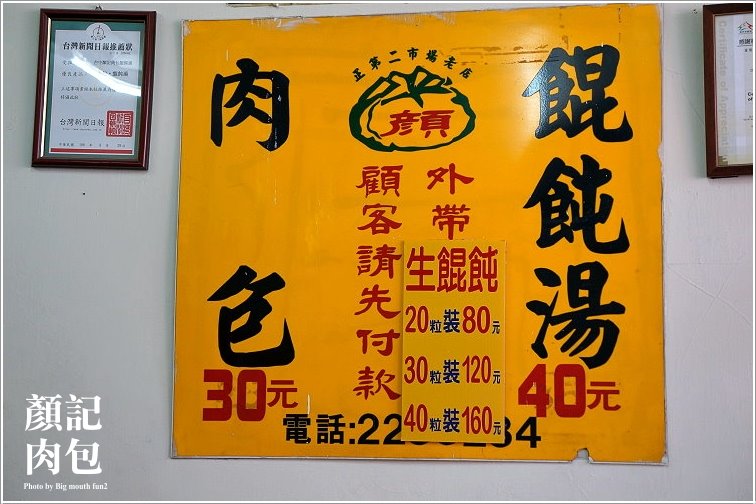 台灣新聞日報推薦獎
台灣新聞日報
正第二市場老店
顏
餛飩湯
40元
外帶
顧客請先付款
肉包
30元
生餛飩
20粒裝80元
30粒裝120元
40粒裝160元
電話:22
34
顏記
肉包
Photo by Big mouth fun2